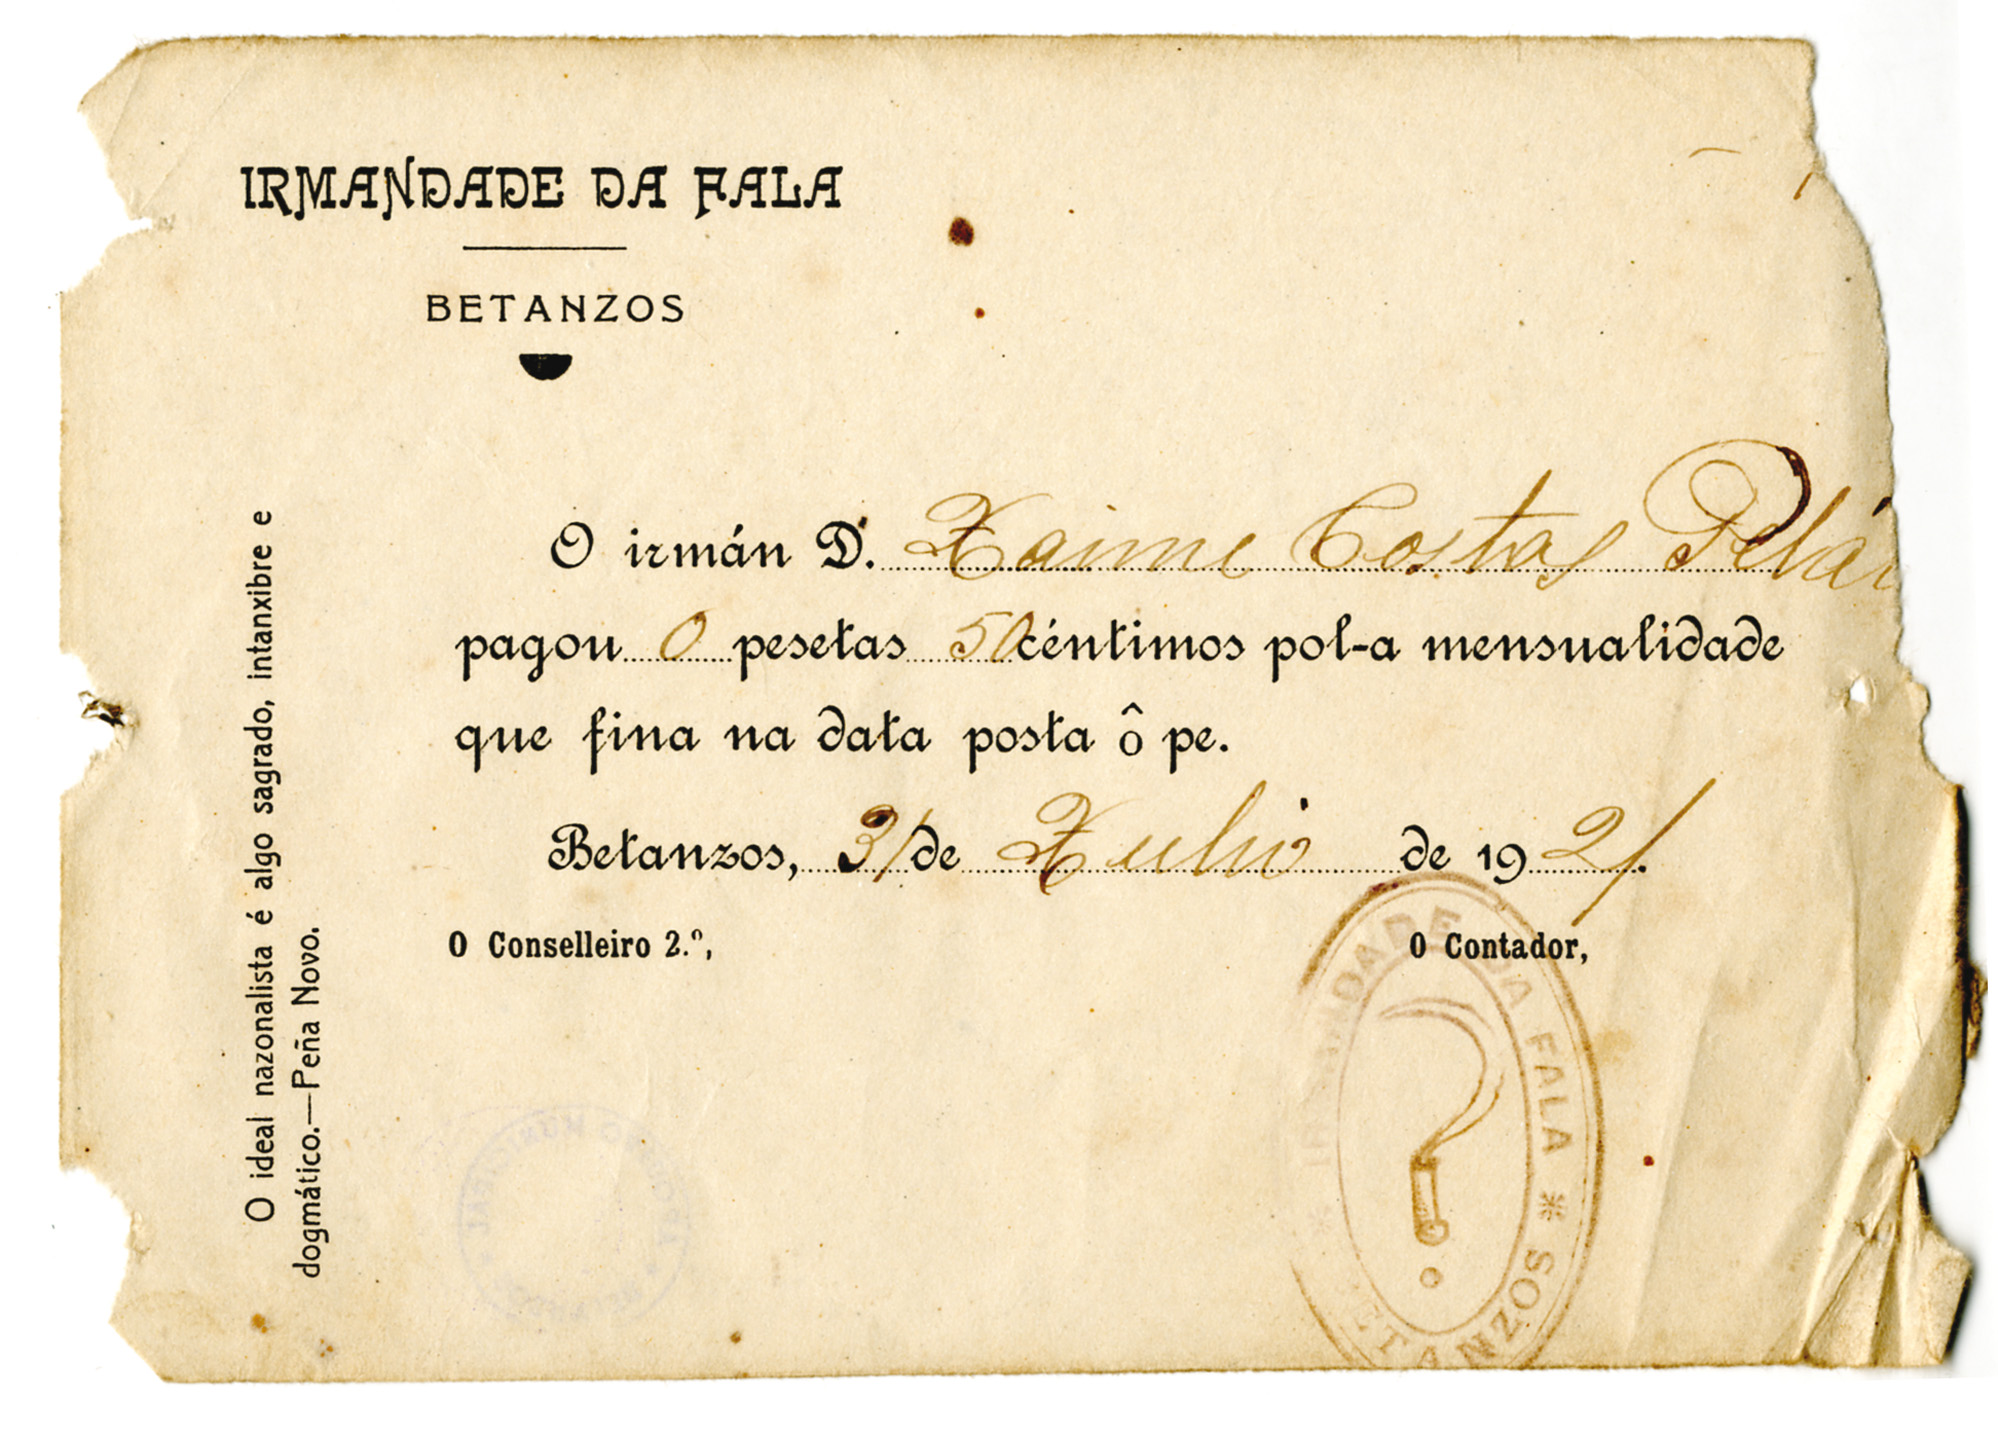 IRMANDADE DA FALA
BETANZOS
O irmán D. Xaime Costas
pagou 0 pesetas 50 céntimos pol-a mensualidade
que fina na data posta ô pe.
Betanzos, 31 de Xulio de 1921.
O Conselleiro 2.º,
O Contador,
O ideal nazonalista é algo sagrado, intanxibre e
dogmático.—Peña Novo.
IRMANDADE DA FALA
BETANZOS